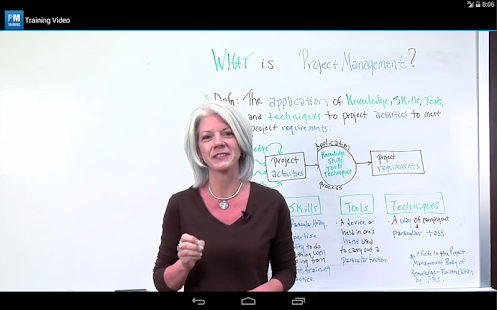 PM
TRAINING
Training Video
8:06
WHAT is Project Management?
Defn: The application of Knowledge, Skills, Tools,
and techniques to project activities to meet
project requirements.
Application
Project
activities
Knowledge
Skills
Tools
Techniques
project
requirements
Process
Skills
Tools
Techniques
A device
held in one's
hand used
to carry out a
particular function.
A way of
particular task
to do
well
from
training
A Guide to the Project
Management Body of
Knowledge - Fourth Edition
by PMI